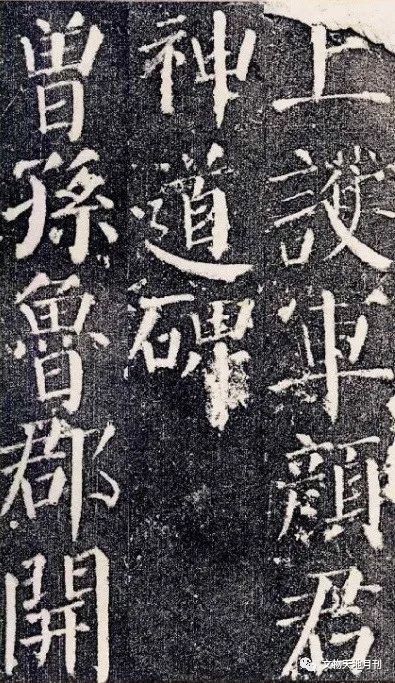 上護軍顏君
神道碑
曾孫魯郡開
文物天地月刊